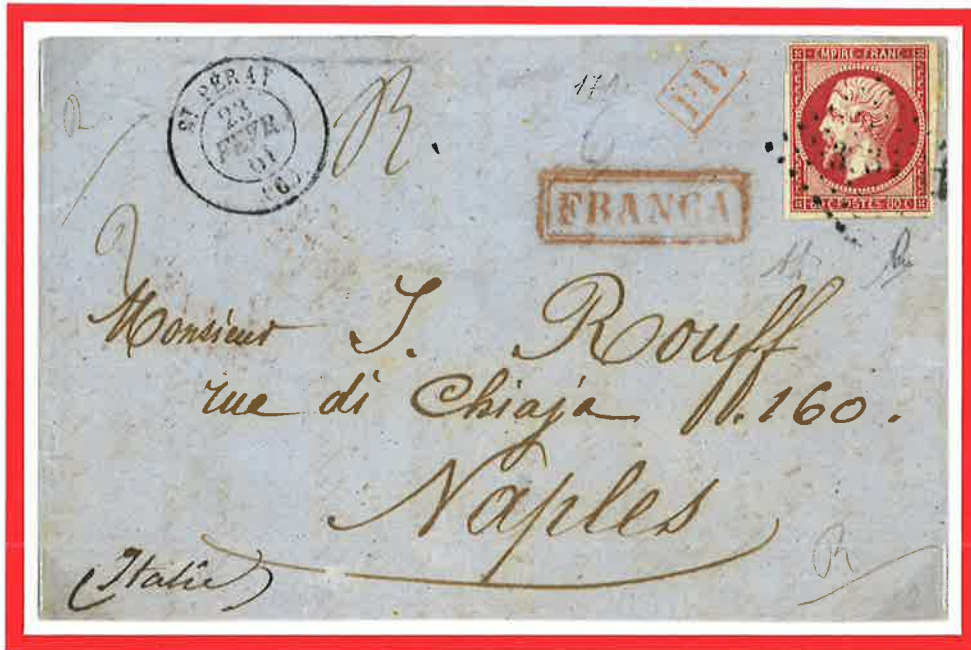 ST PÉRAY
23
FEVR.
61
(6)
R
17
PD
EMPIRE FRANC
80 C POSTES 80 C
FRANCA
Monsieur J. Rouff
rue di Chiaja N. 160.
Naples
(Italie)
R